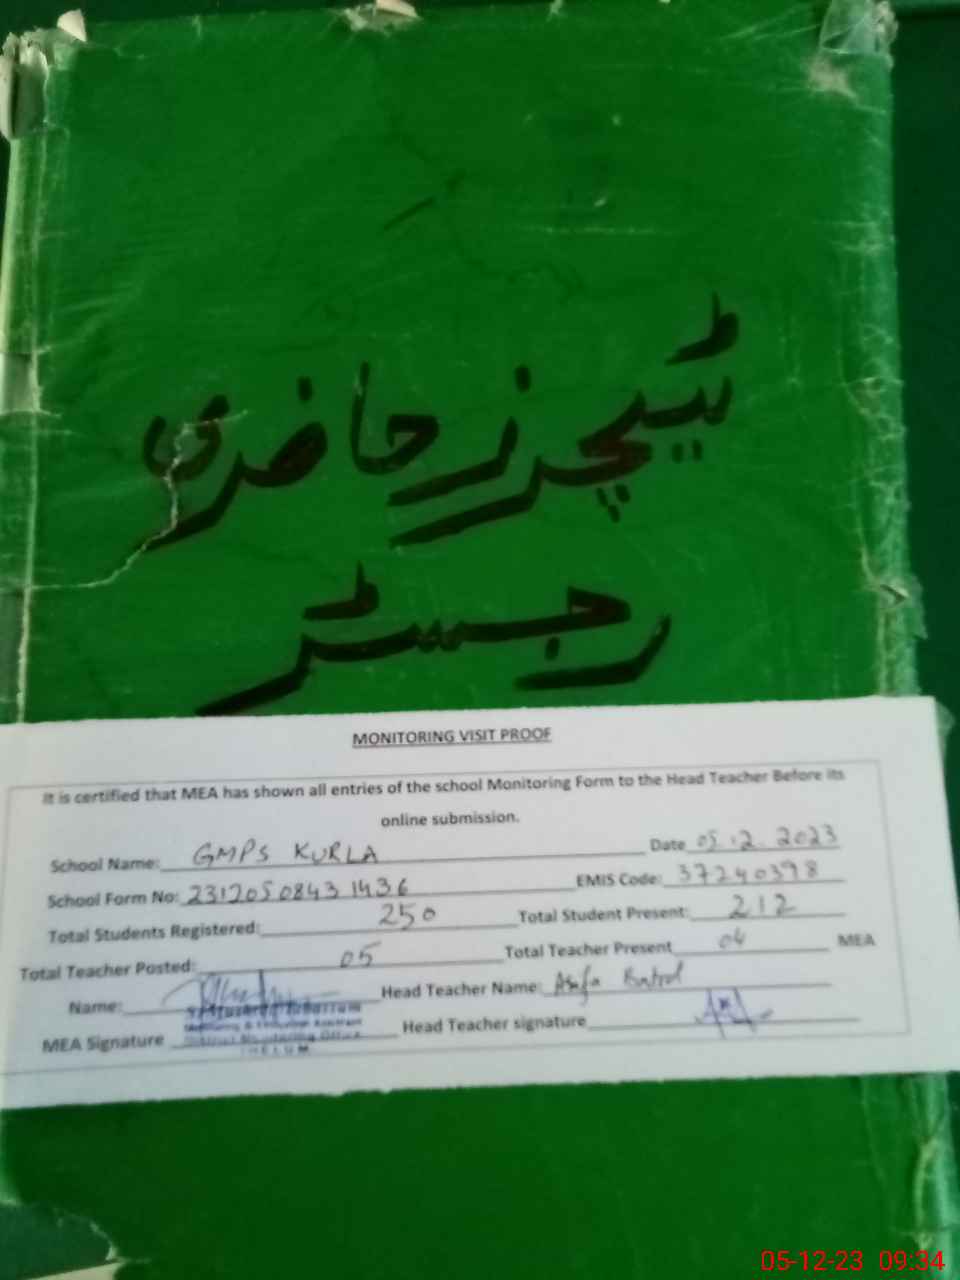 ٹیچرز حاضری
رجسٹر
MONITORING VISIT PROOF
It is certified that MEA has shown all entries of the school Monitoring Form to the Head Teacher Before its
online submission.
School Name: GMPS KURLA Date 05.12.2023
School Form No: 23120508431436 EMIS Code: 37240398
Total Students Registered: 250 Total Student Present: 212
Total Teacher Posted: 05 Total Teacher Present 04 MEA
Name: Head Teacher Name: Asifa
MEA Signature Head Teacher signature
Monitoring & Evaluation Assistant
District Monitoring Office
JHELUM
05-12-23 09:34